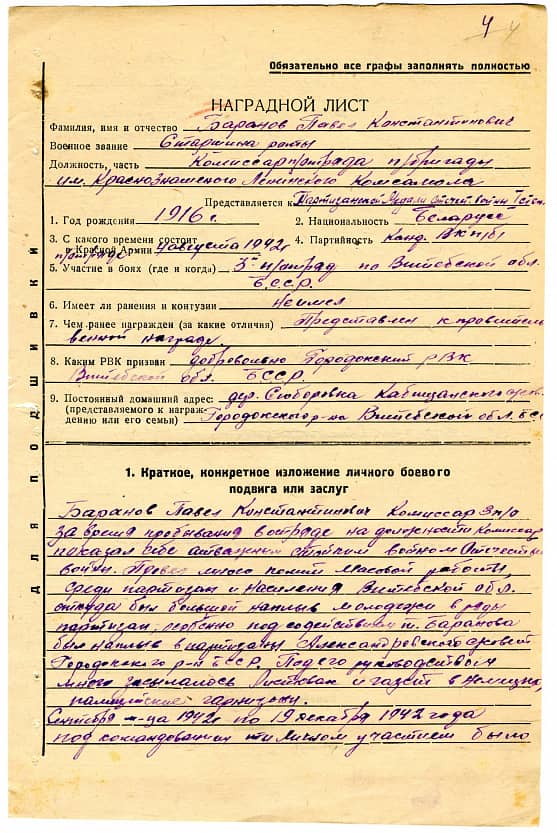 4 4
Обязательно все графы заполнять полностью
НАГРАДНОЙ ЛИСТ
Фамилия, имя и отчество Баранов Павел Константинович
Военное звание Старшина роты
Должность, часть Комиссар п/отряда п/бригады
им. Краснознаменного Ленинского Комсомола
Представляется к Партизанской Медали Отечет. войны I степ.
1. Год рождения 1916 г. 2. Национальность Беларусс
3. С какого времени состоит
в Красной Армии п/отряде августа 1942г 4. Партийность Канд. ВКП/б/
5. Участие в боях (где и когда) 3й п/отряд по Витебской обл.
БССР.
6. Имеет ли ранения и контузии Неимел
7. Чем ранее награжден (за какие отличия) Представлен к провитель
венной награде.
8. Каким РВК призван добровольно Городокский РВК
Витебской обл. БССР.
9. Постоянный домашний адрес: дер.
(представляемого к награж-
дению или его семьи) Городокского р-на Витебской обл. БСС
ДЛЯ ПОДШИВКИ
1. Краткое, конкретное изложение личного боевого
подвига или заслуг
Баранов Павел Константинович Комиссар 3 п/о
за время пребывания в отряде на должности Комиссар
показал себя стойким воином Отечеств
войны. Провел много полит Масовой работы,
среди партизан и населения Витебской обл.
откуда был большой наплыв молодежи в ряды
партизан, особенно под содействием т. Баранова
был наплыв в партизаны Александровского
Городокского р-н БССР. Под его руководством
много засылалось Листовак и газет в Немецко,
гарнизоны.
Сентября м-ца 1942г по 19 декабря 1942 года
под командованием и Личном участием было